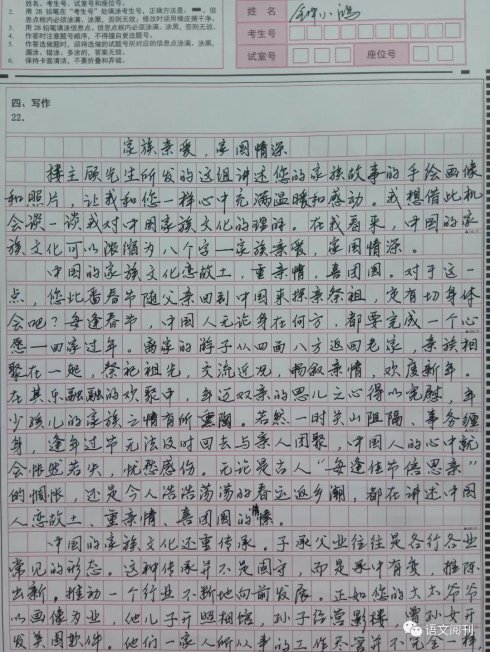 姓名、考生号、试室号和座位号。
2. 用 2B 铅笔在“考生号”处填涂考生号。正确方法是: 信
息点框内必须涂满、涂黑，否则无效；修改时须用橡皮擦干净。
3. 用 2B 铅笔填涂信息点。信息点框内必须涂满、涂黑，否则无效。
4. 作答时注意题号顺序，不得擅自更改题号。
5. 作答选做题时，须将选做的试题号所对应的信息点涂满、涂黑，
漏涂、错涂、多涂的，答案无效。
6. 保持卡面清洁，不要折叠和弄破。
姓 名
小鸿
考生号
试室号
座位号
四、写作
22.
家族亲爱，家国情深
楼主顾先生所发的这组讲述您的家族故事的手绘画像
和照片，让我和您一样心中充满温暖和感动。我想借此机
会谈一谈我对中国家族文化的理解。在我看来，中国的家
族文化可以浓缩为八个字—家族亲爱，家国情深。
中国的家族文化恋故土，重亲情，喜团圆。对于这一
点，您此番春节随父亲回到中国来探亲祭祖，定有切身体
会吧？每逢春节，中国人无论身在何方，都要完成一个心
愿—回家过年。离家的游子从四面八方返回老家，亲族相
聚在一起，祭祀祖先，交流近况，畅叙亲情，欢度新年。
在其乐融融的欢聚中，年迈双亲的思儿之心得以宽慰，年
少孩儿的家族之情有所熏陶。若然一时关山阻隔、事务缠
身，逢年过节无法及时回去与亲人团聚，中国人的心中就
会怅然若失，忧愁感伤。无论是古人“每逢佳节倍思亲”
的惆怅，还是今人浩浩荡荡的春运返乡潮，都在讲述中国
人恋故土、重亲情、喜团圆的情愫。
中国的家族文化还重传承。子承父业往往是各行各业
常见的形态。这种传承并不是固守，而是承中有变，推陈
出新。推动一个行业不断地向前发展。正如您的太太爷爷
以画像为业，他儿子开照相馆，孙子经营影楼，曾孙女开
发美图软件。他们一家人所从事的工作尽管并不完全一样，
语文阅刊